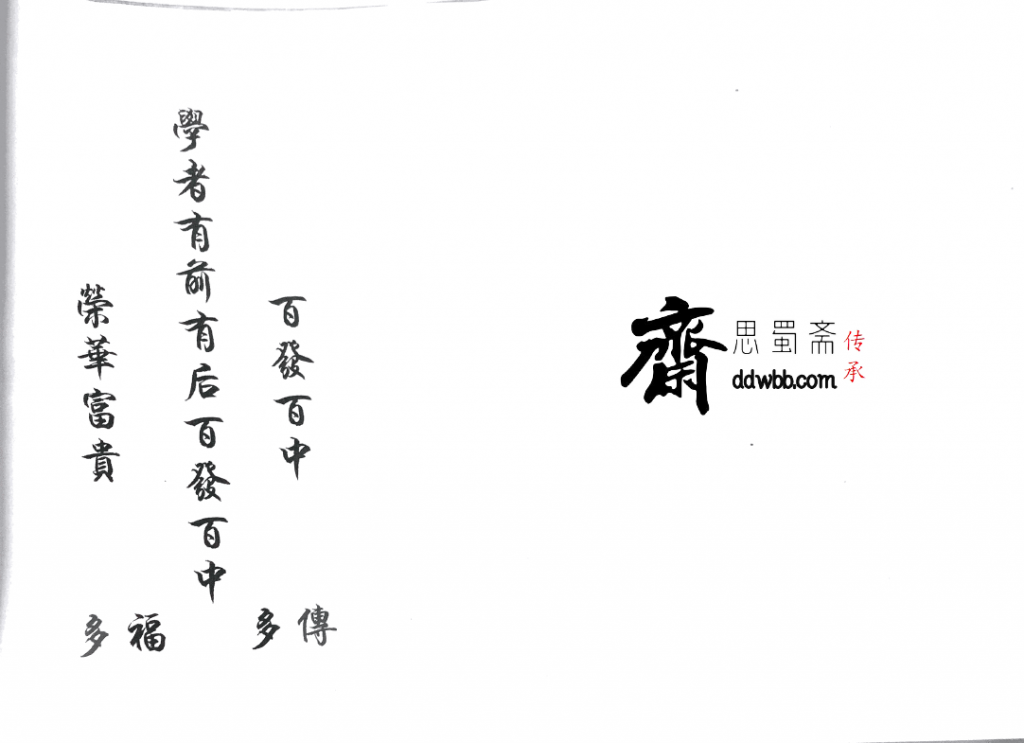 百發百中
學者有前有后百發百中
榮華富貴
傳多
福多
齋
思蜀斋
ddwbb.com
传承